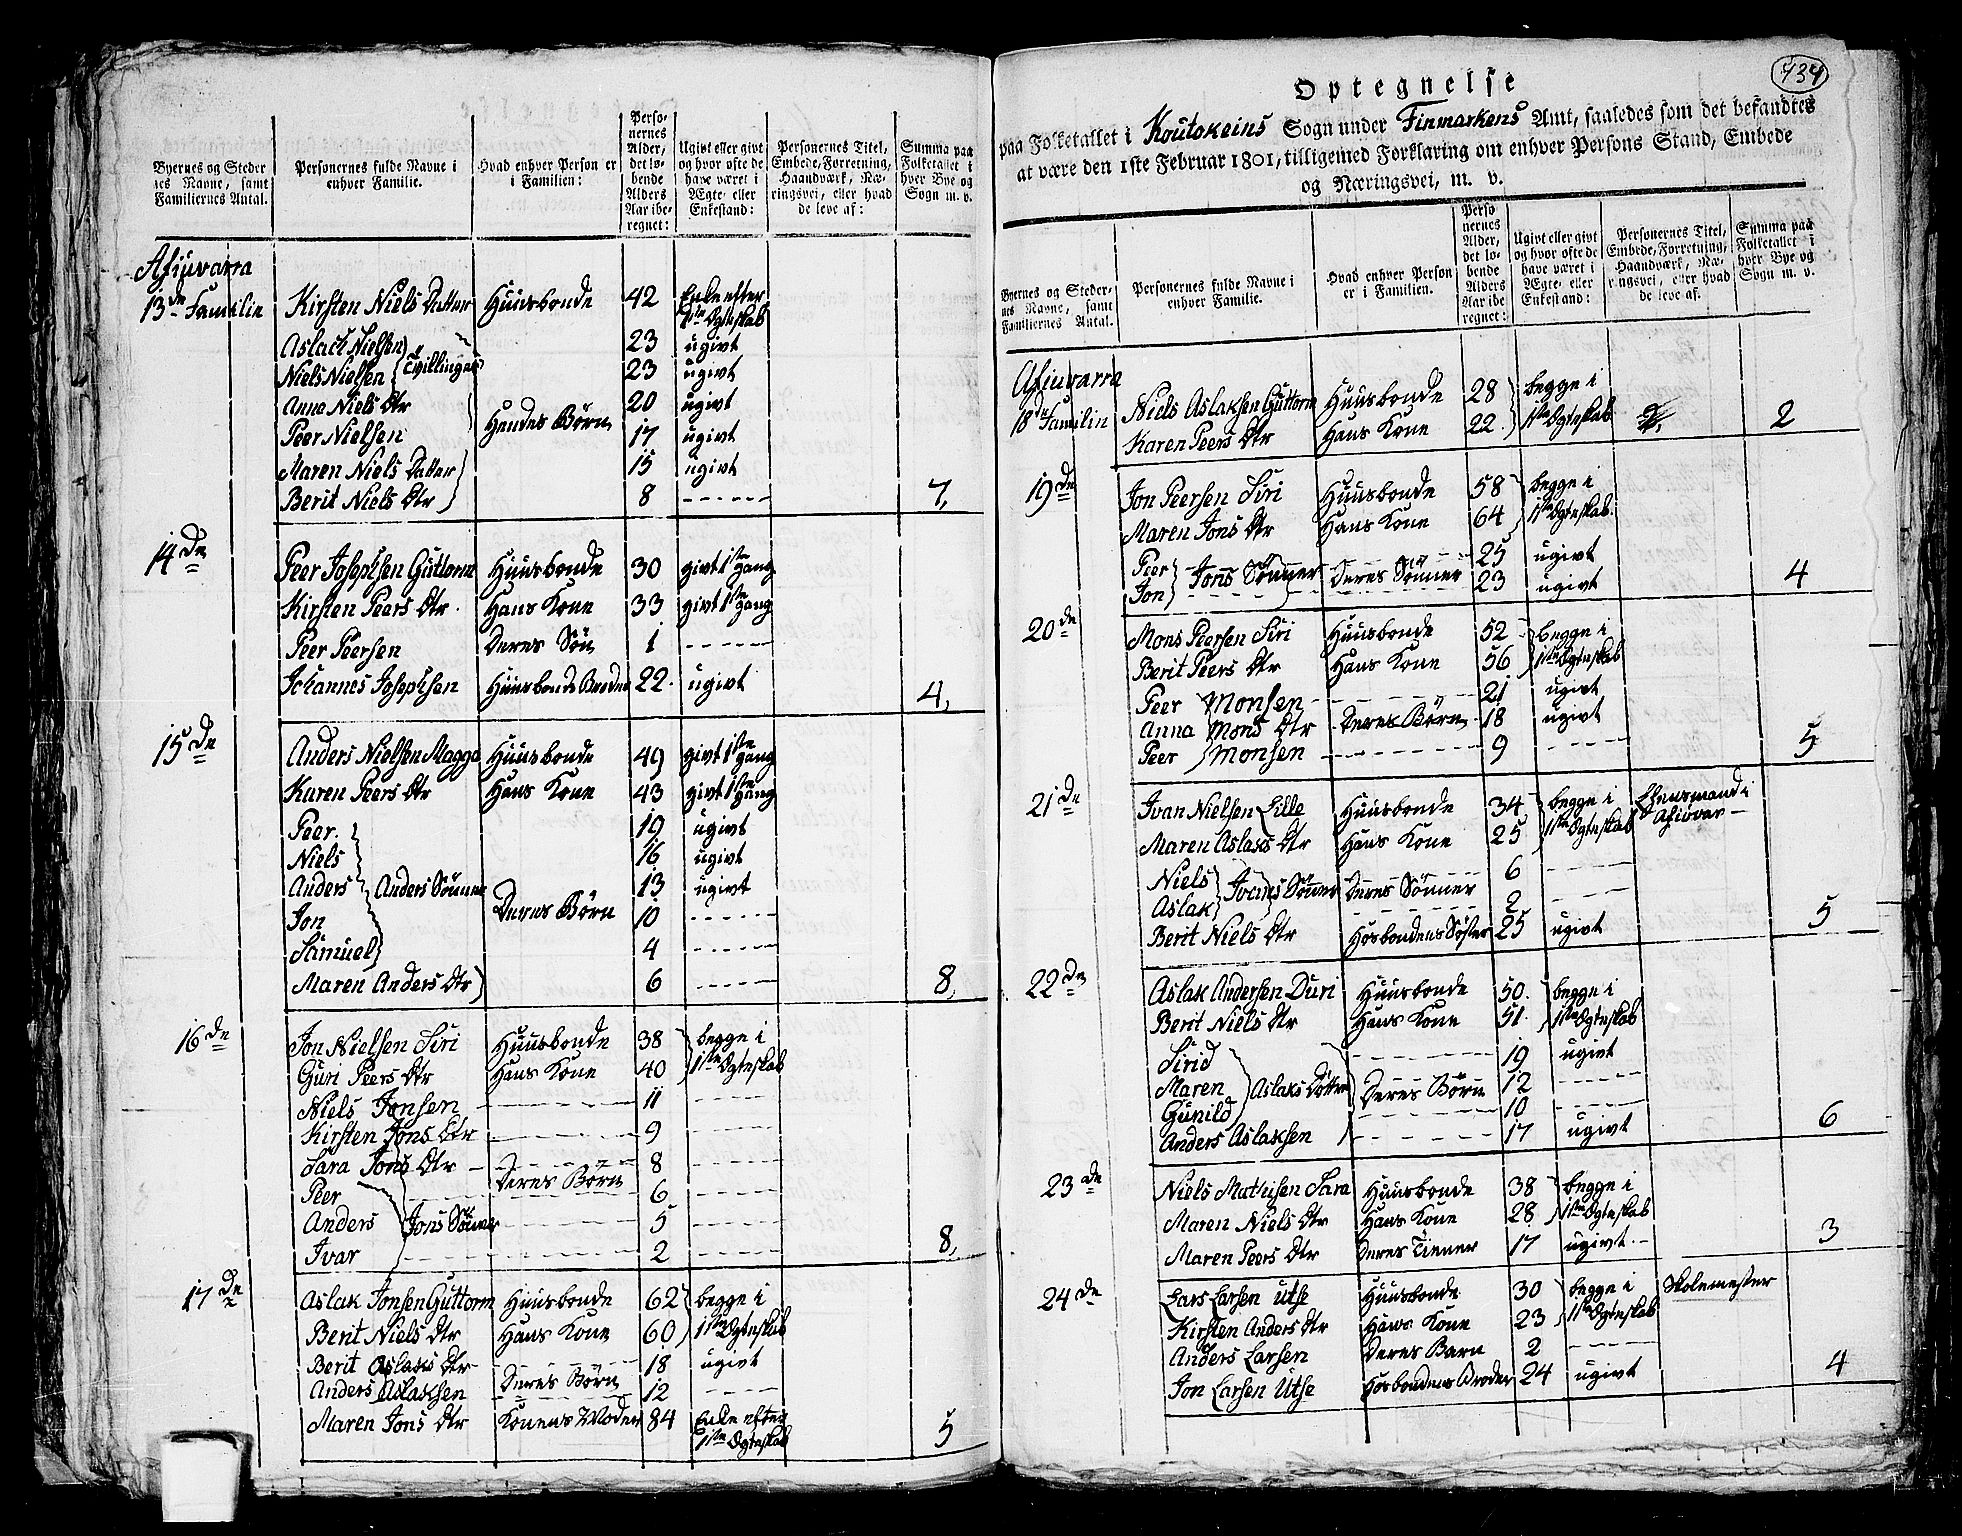 Byernes og Steder
nes Navne, samt
Familiernes Antal.
Personernes fulde Navne i
enhver Familie.
Hvad enhver Person er
i Familien:
Perso-
nernes
Alder,
det lø-
bende
Alders
Aar ibe-
regnet:
Ugivt eller givt
og hvor ofte de
have været i
Ægte- eller
Enkestand:
Personernes Titel,
Embede, Forretning,
Haandværk, Næ-
ringsvei, eller hvad
de leve af:
Summa paa
Folketallet i
hver Bye og
Sogn m. v.
Afiuvarra
13de Familie Kirsten Niels Datter Huusbonde 42 Enke efter
1ste Ægteskab
Aslach Nielsen 23 ugivt
Niels Nielsen Tvillinger 23 ugivt
Anna Niels Dtr 20 ugivt
Peer Nielsen Hendes Börn 17 ugivt
Maren Niels Datter 15 ugivt
Berit Niels Dtr 8 ----- 7,
14de Peer Josephsen Guttorm Huusbonde 30 givt 1ste gang
Kirsten Peers Dtr. Hans Kone 33 givt 1ste gang
Peer Peersen Deres Sön 1 -----
Johannes Josephsen Huusbonds Broder 22. ugivt 4,
15de Anders Nielsen Magga Huusbonde 49 givt 1ste gang
Karen Peers Dtr Hans Kone 43 givt 1ste gang
Peer. 19 ugivt
Niels 16 ugivt
Anders Anders Sönner 13 ugivt
Jon Deres Börn 10 -----
Samuel 4 -----
Maren Anders Dtr 6 ----- 8,
16de Jon Nielsen Siri Huusbonde 38 begge i
Guri Peers Dtr Hans Kone 40 1ste Ægteskab
Niels Jonsen 11 -----
Kirsten Jons Dtr 9 -----
Sara Jons Dtr 8 -----
Peer Deres Börn 6 -----
Anders Jons Sönner 5 -----
Ivar 2 ----- 8,
17de Aslak Jonsen Guttorm Huusbonde 62 begge i
Berit Niels Dtr Hans Kone 60 1ste Ægteskab
Berit Aslaks Dtr Deres Börn 18 ugivt
Anders Aslaksen 12 -----
Maren Jons Dtr Konens Moder 84 Enke efter
1ste Ægteskab 5
434
Optegnelse
paa Folketallet i Koutokeins Sogn under Finmarkens Amt, saaledes som det befandtes
at være den 1ste Februar 1801, tilligemed Forklaring om enhver Persons Stand, Embede
og Næringsvei, m. v.
Byernes og Steder-
nes Navne, samt
Familiernes Antal.
Personernes fulde Navne i
enhver Familie.
Hvad enhver Person
er i Familien.
Perso
nernes
Alder,
det lø-
bende
Alders
Aar ibe
regnet:
Ugivt eller givt
og hvor ofte de
have været i
Ægte- eller
Enkestand:
Personernes Titel,
Embede, Forretning,
Haandværk, Næ-
ringsvei, eller hvad
de leve af.
Summa paa
Folketallet i
hver Bye og
Sogn m. v.
Afiuvarra
18de Familie Niels Aslaksen Guttorm Huusbonde 28 begge i
Karen Peers Dtr Hans Kone 22. 1ste Ægteskab 2
19de Jon Peersen Siri Huusbonde 58 begge i
Maren Jons Dtr Hans Kone 64 1ste Ægteskab.
Peer Jons Sönner Deres Sönner 25 ugivt
Jon 23 ugivt 4
20de Mons Peersen Siri Huusbonde 52 begge i
Berit Peers Dtr Hans Kone 56 1ste Ægteskab
Peer Monsen 21 ugivt
Anna Mons Dtr Deres Börn 18 ugivt
Peer Monsen 9 ----- 5
21de Ivan Nielsen Lille Huusbonde 34 begge i Lhensmand i
Maren Aslaks Dtr Hans Kone 25 1ste Ægteskab Afiovar
Niels Ivans Sönner Deres Sönner 6 -----
Aslak 2 -----
Berit Niels Dtr Hosbondens Söster 25 ugivt 5
22de Aslak Andersen Duri Huusbonde 50. begge i
Berit Niels Dtr Hans Kone 51. 1ste Ægteskab
Sirid 19 ugivt
Maren Aslaks Döttre Deres Börn 12 -----
Gunild 10 -----
Anders Aslaksen 17 ugivt 6
23de Niels Mathisen Sara Huusbonde 38 begge i
Maren Niels Dtr Hans Kone 28 1ste Ægteskab
Maren Peers Dtr Deres Tiener 17 ugivt. 3
24de Lars Larsen Utse Huusbonde 30 begge i Skolemester
Kirsten Anders Dtr Hans Kone 23 1ste Ægteskab
Anders Larsen Deres Barn 2 -----
Jon Larsen Utse Hosbondens Broder 24 ugivt 4